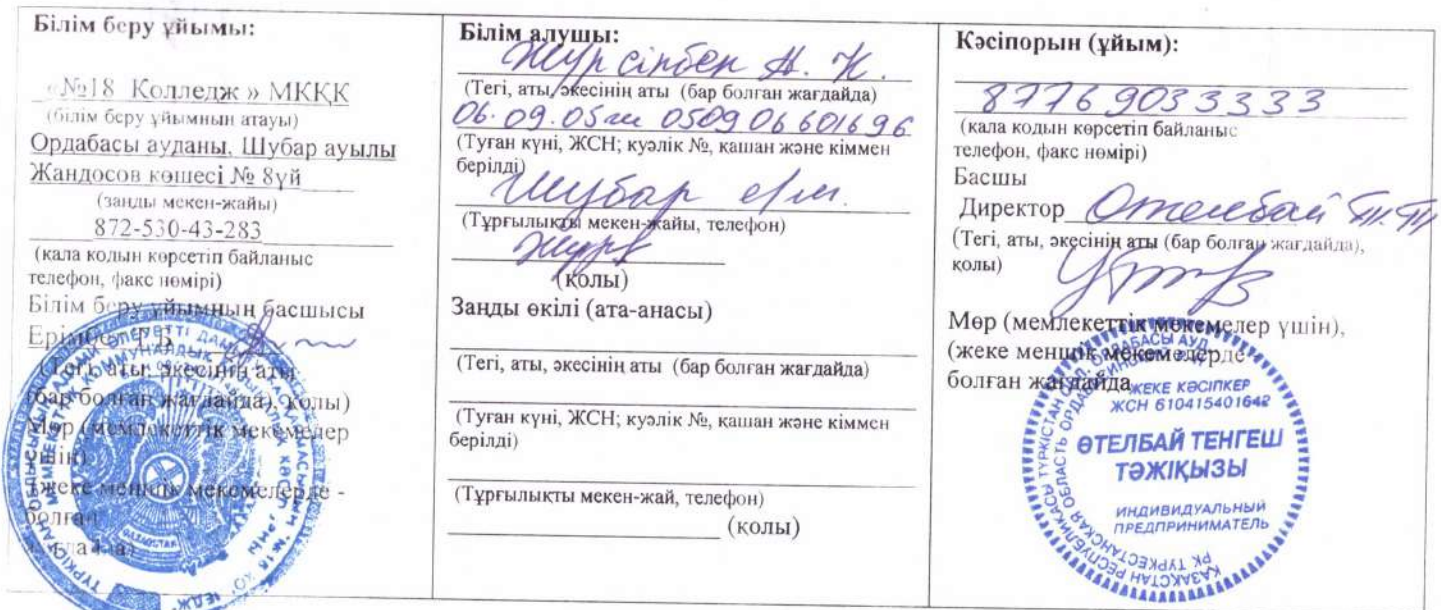 Білім беру ұйымы:
«№18 Колледж » МКҚК
(білім беру ұйымның атауы)
Ордабасы ауданы, Шубар ауылы
Жандосов көшесі № 8үй
(заңды мекен-жайы)
872-530-43-283
(қала кодын көрсетіп байланыс
телефон, факс нөмірі)
Білім беру ұйымның басшысы
Ерімбет Т.Б
(Тегі, аты, әкесінің аты
(бар болған жағдайда), қолы)
Мөр (мемлекеттік мекемелер
үшін)
(жеке меншік мекемелерде -
болған
Білім алушы:
Нұрсінбек А. К.
(Тегі, аты, әкесінің аты (бар болған жағдайда)
06.09.05 050906601696
(Туған күні, ЖСН; куәлік №, қашан және кіммен
берілді)
Шубар а/м.
(Тұрғылықты мекен-жайы, телефон)
(қолы)
Заңды өкілі (ата-анасы)
(Тегі, аты, әкесінің аты (бар болған жағдайда)
(Туған күні, ЖСН; куәлік №, қашан және кіммен
берілді)
(Тұрғылықты мекен-жай, телефон)
(қолы)
Кәсіпорын (ұйым):
87769033333
(қала кодын көрсетіп байланыс
телефон, факс нөмірі)
Басшы
Директор Отелбай Т.Т
(Тегі, аты, әкесінің аты (бар болған жағдайда),
қолы)
Мөр (мемлекеттік мекемелер үшін),
(жеке меншік мекемелерде
болған жағдайда
ЖЕКЕ КӘСІПКЕР
ЖСН 610415401642
ӨТЕЛБАЙ ТЕНГЕШ
ТӘЖІҚЫЗЫ
ИНДИВИДУАЛЬНЫЙ
ПРЕДПРИНИМАТЕЛЬ
ҚАЗАҚСТАН РЕСПУБЛИКАСЫ ТҮРКІСТАН ОБЛ. ОРДАБАСЫ АУД.
РК ТУРКЕСТАНСКАЯ ОБЛАСТЬ
ҚАЗАҚСТАН